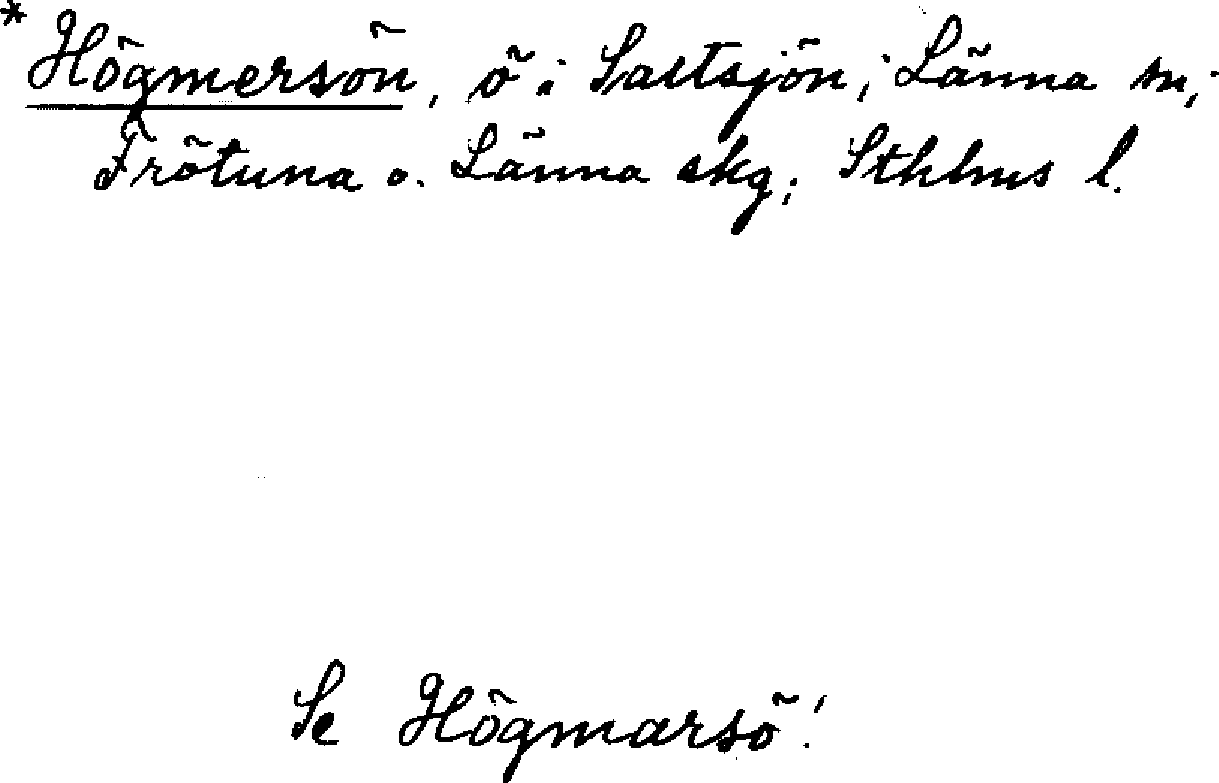 * Högmersön, ö i Saltsjön; Länna sn;
Frötuna o. Länna skg; Sthlms l.
Se Högmarsö!